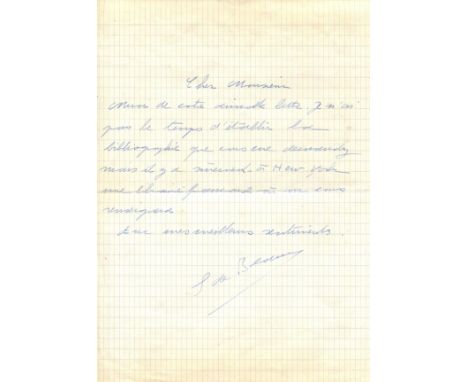 Cher Monsieur
Merci de votre aimable lettre. Je n'ai
pas le temps d'établir la
bibliographie que vous me demandez
mais il y a sûrement à New York
une librairie française où on vous
renseignera.
avec mes meilleurs sentiments.
S de Beauvoir